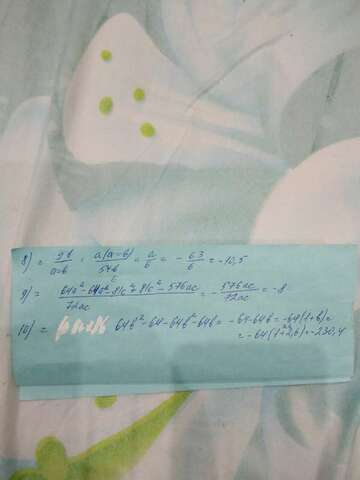 8) = 9b/(a-b) · a(a-b)/54b = a/6 = - 63/6 = -10,5
9) = (64a² - 64a² - 81c² + 81c² - 576ac)/72ac = - 576ac/72ac = -8
10) = 64b² - 64 - 64b² - 64b = -64-64b = -64(1+b) =
= -64(1+2,6) = -230,4